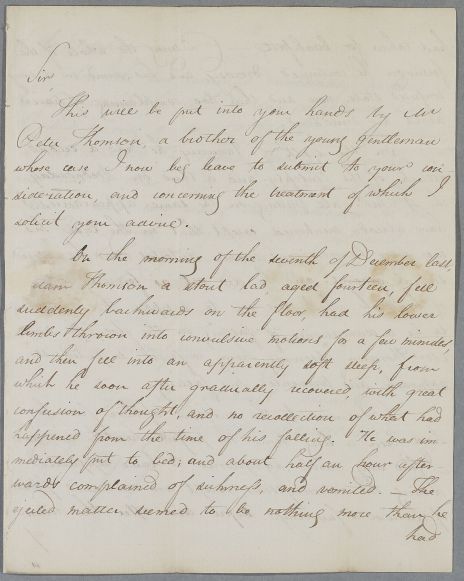 Sir
This will be put into your hands by Mr
Peter Thomson, a brother of the young gentleman
whose case I now beg leave to submit to your con
sideration, and concerning the treatment of which I
solicit your advice.
On the morning of the seventh of December last,
Thomson a stout lad aged fourteen, fell
suddenly backwards on the floor, had his lower
limbs thrown into convulsive motions for a few minutes,
and then fell into an apparently soft sleep, from
which he soon after gradually recovered, with great
confusion of thought, and no recollection of what had
happened from the time of his falling. He was im-
mediately put to bed; and about half an hour after-
wards complained of sickness, and vomited. — The
matter seemed to be nothing more than he
had